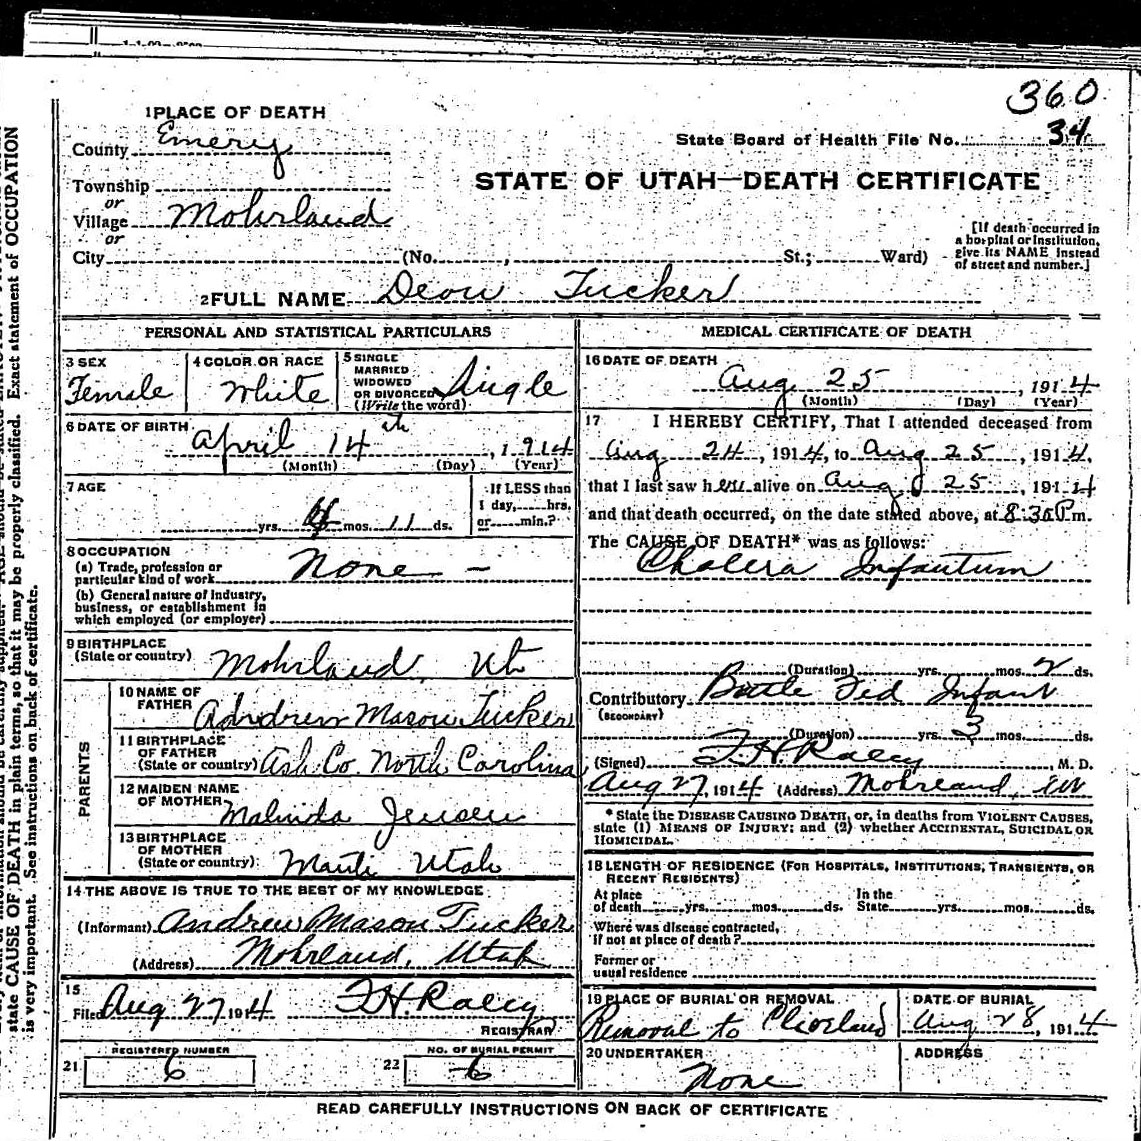 360
1 PLACE OF DEATH
County Emery
State Board of Health File No. 34
STATE OF UTAH—DEATH CERTIFICATE
Township
or
Village Mohrland
or
City (No. , St.; Ward)
[If death occurred in
a hospital or institution,
give its NAME instead
of street and number.]
2 FULL NAME Deon Tucker
PERSONAL AND STATISTICAL PARTICULARS
3 SEX
Female
4 COLOR OR RACE
White
5 SINGLE
MARRIED
WIDOWED
OR DIVORCED
(Write the word)
Single
6 DATE OF BIRTH
April 14th, 1914
(Month) (Day) (Year)
7 AGE
yrs. 4 mos. 11 ds.
If LESS than
1 day, hrs.
or min.?
8 OCCUPATION
(a) Trade, profession or
particular kind of work None —
(b) General nature of industry,
business, or establishment in
which employed (or employer)
9 BIRTHPLACE
(State or country) Mohrland, Ut
PARENTS
10 NAME OF
FATHER Andrew Mason Tucker
11 BIRTHPLACE
OF FATHER
(State or country) Ash Co North Carolina
12 MAIDEN NAME
OF MOTHER Malinda Jensen
13 BIRTHPLACE
OF MOTHER
(State or country) Manti Utah
14 THE ABOVE IS TRUE TO THE BEST OF MY KNOWLEDGE
(Informant) Andrew Mason Tucker
(Address) Mohrland, Utah
15
Filed Aug 27 1914
REGISTRAR
REGISTERED NUMBER
21 6
NO. OF BURIAL PERMIT
22 6
MEDICAL CERTIFICATE OF DEATH
16 DATE OF DEATH
Aug 25, 1914
(Month) (Day) (Year)
17 I HEREBY CERTIFY, That I attended deceased from
Aug 24, 1914, to Aug 25, 1914,
that I last saw her alive on Aug 25, 1914
and that death occurred, on the date stated above, at 8:30 P m.
The CAUSE OF DEATH* was as follows:
Cholera Infantum
(Duration) yrs. mos. 2 ds.
Contributory Bottle Fed Infant
(SECONDARY)
(Duration) yrs. 3 mos. ds.
(Signed) M. D.
Aug 27, 1914 (Address) Mohrland, Ut
* State the DISEASE CAUSING DEATH, or, in deaths from VIOLENT CAUSES,
state (1) MEANS OF INJURY; and (2) whether ACCIDENTAL, SUICIDAL OR
HOMICIDAL.
18 LENGTH OF RESIDENCE (FOR HOSPITALS, INSTITUTIONS, TRANSIENTS, OR
RECENT RESIDENTS)
At place
of death yrs. mos. ds.
In the
State yrs. mos. ds.
Where was disease contracted,
if not at place of death?
Former or
usual residence
19 PLACE OF BURIAL OR REMOVAL
Removal to Cleveland
DATE OF BURIAL
Aug 28, 1914
20 UNDERTAKER
None
ADDRESS
READ CAREFULLY INSTRUCTIONS ON BACK OF CERTIFICATE
state CAUSE OF DEATH in plain terms, so that it may be properly classified. Exact statement of OCCUPATION
is very important. See instructions on back of certificate.